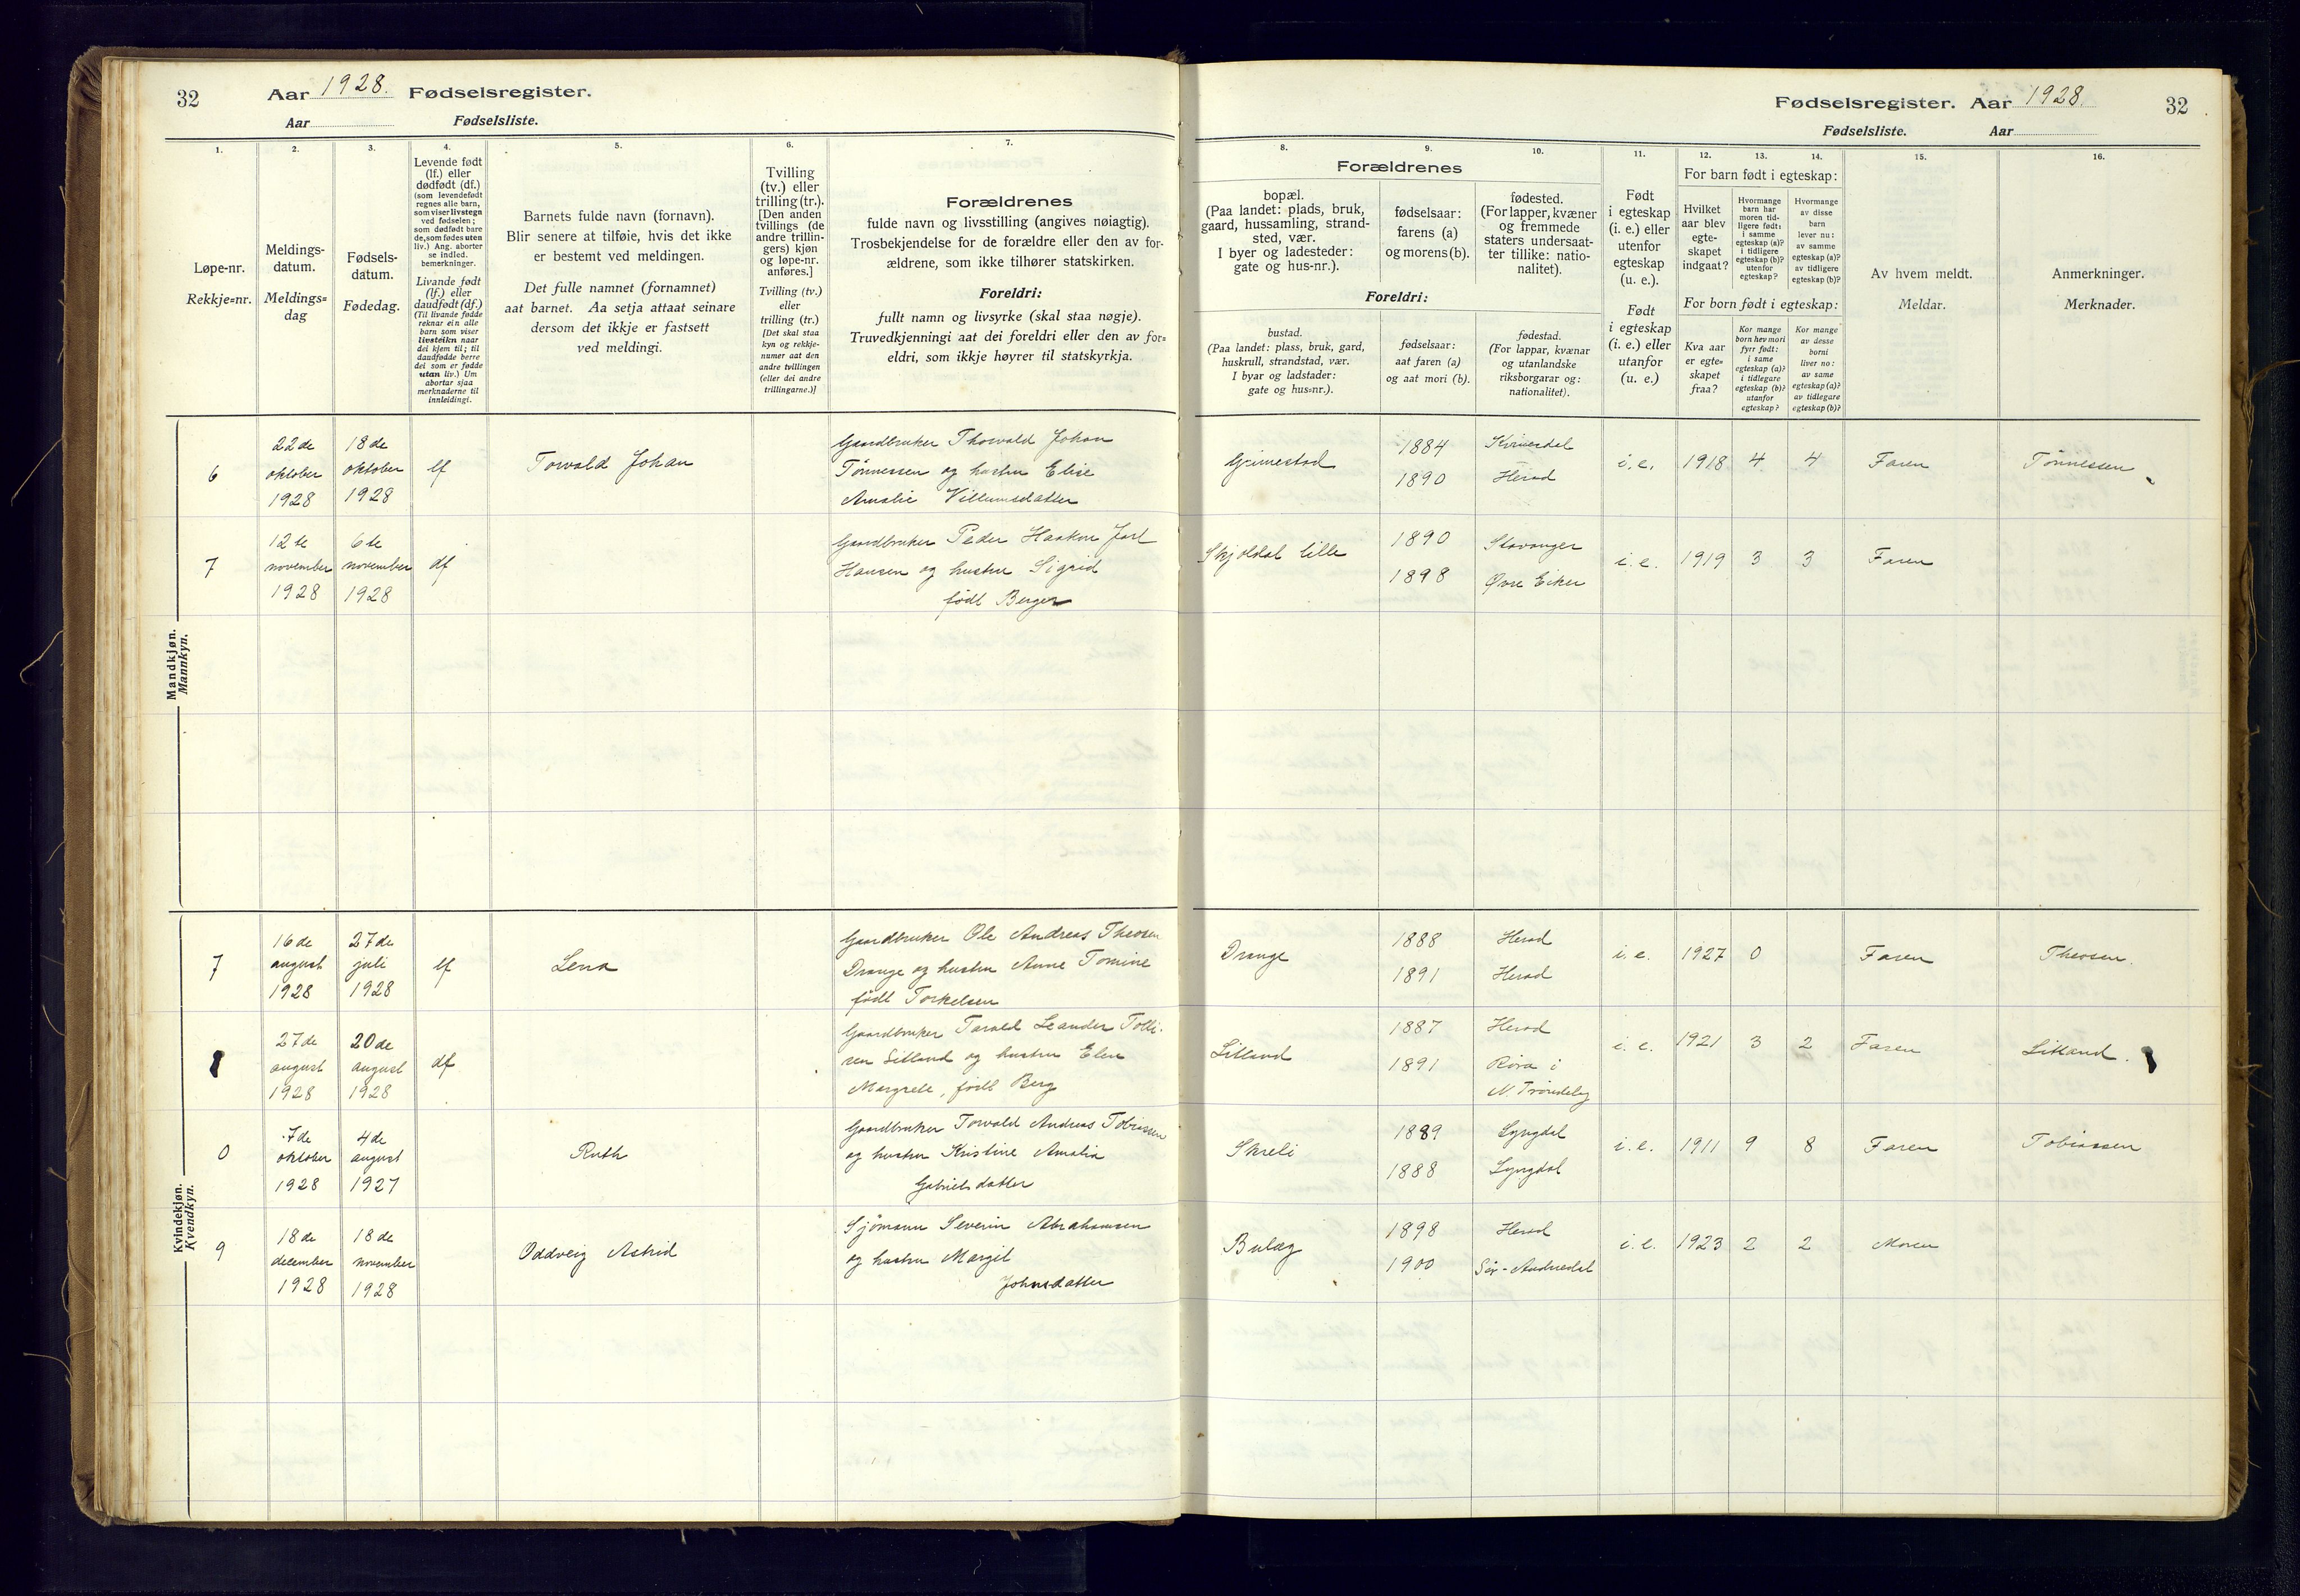 32
Aar 1928. Fødselsregister.
Aar
Fødselsliste.
Fødselsregister. Aar 1928.
32
Fødselsliste.
Aar
1.
2.
3.
4.
5.
6.
7.
8.
9.
10.
11.
12.
13.
14.
15.
16.
Løpe-nr.
Rekkje=nr.
Meldings-
datum.
Meldings=
dag
Fødsels-
datum.
Fødedag.
Levende født
(lf.) eller
dødfødt (df.)
(som levendefødt
regnes alle barn,
som viser livstegn
ved fødselen;
som dødfødt bare
de, som fødes uten
liv.) Ang. aborter
se indled.
bemerkninger.
Livande født
(lf.) eller
daudfødt (df.)
(Til livande fødde
reknar ein alle
barn som viser
livsteikn naar
dei kjem til; til
daudfødde berre
dei som er fødde
utan liv.) Um
abortar sjaa
merknaderne til
innleidingi.
Barnets fulde navn (fornavn).
Blir senere at tilføie, hvis det ikke
er bestemt ved meldingen.
Det fulle namnet (fornamnet)
aat barnet. Aa setja attaat seinare
dersom det ikkje er fastsett
ved meldingi.
Tvilling
(tv.) eller
trilling (tr.).
[Den anden
tvillings (de
andre trillin-
gers) kjøn
og løpe-nr.
anføres.]
Tvilling (tv.)
eller
trilling (tr.)
[Det skal staa
kyn og rekkje-
numer aat den
andre tvillingen
(eller dei andre
trillingarne.)]
Forældrenes
fulde navn og livsstilling (angives nøiagtig).
Trosbekjendelse for de forældre eller den av for-
ældrene, som ikke tilhører statskirken.
Foreldri:
fullt namn og livsyrke (skal staa nøgje).
Truvedkjenningi aat dei foreldri eller den av for=
eldri, som ikkje høyrer til statskyrkja.
Forældrenes
bopæl.
(Paa landet: plads, bruk,
gaard, hussamling, strand-
sted, vær.
I byer og ladesteder:
gate og hus-nr.).
fødselsaar:
farens (a)
og morens (b).
fødested.
(For lapper, kvæner
og fremmede
staters undersaat-
ter tillike: natio-
nalitet).
Foreldri:
bustad.
(Paa landet: plass, bruk, gard,
huskrull, strandstad, vær.
I byar og ladstader:
gate og hus=nr.).
fødselsaar:
aat faren (a)
og aat mori (b).
fødestad.
(For lappar, kvænar
og utanlandske
riksborgarar og:
nationalitet).
Født
i egteskap
(i. e.) eller
utenfor
egteskap
(u. e.).
Født
i egteskap
(i. e.) eller
utanfor
(u. e.)
For barn født i egteskap:
Hvilket
aar blev
egte-
skapet
indgaat?
Hvormange
barn har
moren tid-
ligere født:
i samme
egteskap (a)?
i tidligere
egteskap (b)?
utenfor
egteskap?
Hvormange
av disse
barn
lever nu:
av samme
egteskap (a)?
av tidligere
egteskap (b)?
For born født i egteskap:
Kva aar
er egte=
skapet
fraa?
Kor mange
born hev mori
fyrr født:
i same
egteskap (a)?
i tidlegare
egteskap (b)?
utanfor
egteskap?
Kor mange
av desse
borni
liver no:
av same
egteskap (a)?
av tidlegare
egteskap (b)?
Av hvem meldt.
Meldar.
Anmerkninger.
Merknader.
Mandkjøn.
Mannkyn.
6
22de
oktober
1928
18de
oktober
1928
lf
Torvald Johan
Gaardbruker Thorvald Johan
Tønnessen og hustru Elise
Amalie Villumsdatter
Grimestad
1884
1890
Kvinesdal
Herad
i. e.
1918
4
4
Faren
Tønnessen
7
12te
november
1928
6te
november
1928
df
Gaardbruker Peder Haakon Jarl
Hansen og hustru Sigrid
født Berger
Skjoldal lille
1890
1898
Stavanger
Øvre Eiker
i. e.
1919
3
3
Faren
Kvindekjøn.
Kvendkyn.
7
16de
august
1928
27de
juli
1928
lf
Lena
Gaardbruker Ole Andreas Theosen
Drange og hustru Anne Tomine
født Torkelsen
Drange
1888
1891
Herad
Herad
i. e.
1927
0
Faren
Theosen.
27de
august
1928
20de
august
1928
df
Gaardbruker Tarald Leander Tolli-
sen Litland og hustru Elen
Margrete, født Berg
Litland
1887
1891
Herad
Røra i
N. Trøndelag
i. e.
1921
3
2
Faren
Litland.
0
7de
oktober
1928
4de
august
1927
Ruth
Gaardbruker Torvald Andreas Tobiassen
og hustru Kristine Amalia
Gabrielsdatter
Skreli
1889
1888
Lyngdal
Lyngdal
i. e.
1911
9
8
Faren
Tobiassen
9
18de
december
1928
18de
november
1928
Oddveig Astrid
Sjømann Severin Abrahamsen
og hustru Margit
Johnsdatter
Bulæg
1898
1900
Herad
Sør-Audnedal
i. e.
1923
2
2
Moren